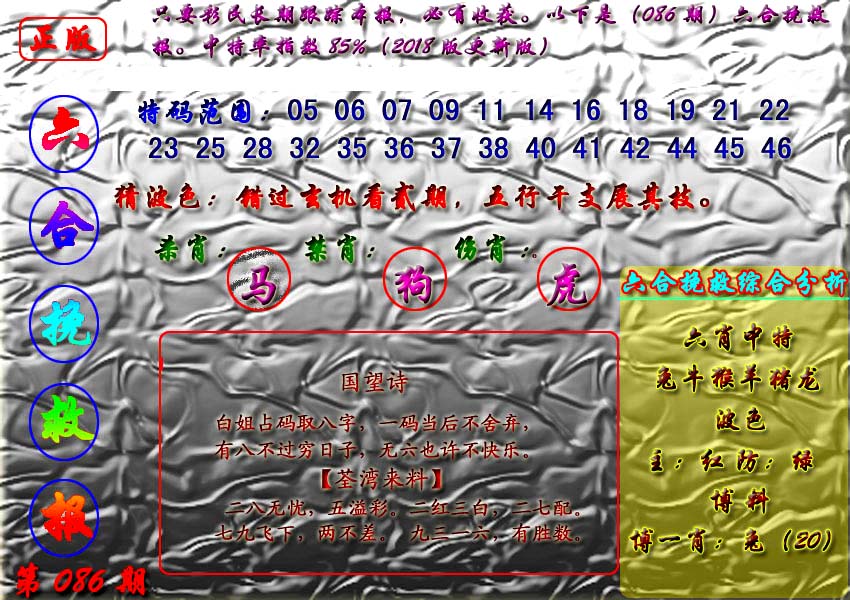 正版
只要彩民长期跟踪本报，必有收获。以下是（086期）六合挽救
报。中特率指数85%（2018版更新版）
六合挽救报
第086期
特码范围：05 06 07 09 11 14 16 18 19 21 22
23 25 28 32 35 36 37 38 40 41 42 44 45 46
猜波色：错过玄机看贰期，五行干支展其技。
杀肖：马 禁肖：狗 伤肖：虎
国望诗
白姐占码取八字，一码当后不舍弃，
有八不过穷日子，无六也许不快乐。
【荃湾来料】
二八无忧，五溢彩。二红三白，二七配。
七九飞下，两不差。 九三一六，有胜数。
六合挽救综合分析
六肖中特
兔牛猴羊猪龙
波色
主：红防：绿
博料
博一肖：兔（20）